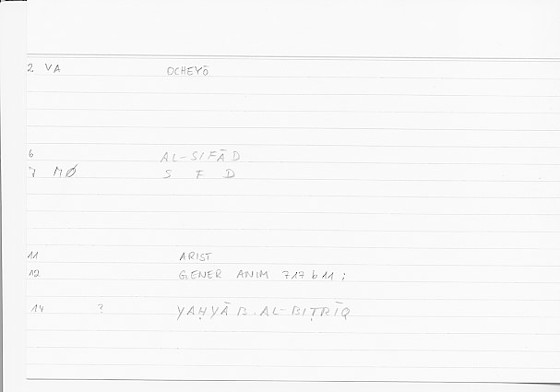 2 VA OCHEYŌ
6 AL-SIFĀD
7 MØ S F D
11 ARIST
12 GENER ANIM 717 b 11 ;
14 ? YAḤYĀ B. AL-BIṬRĪQ